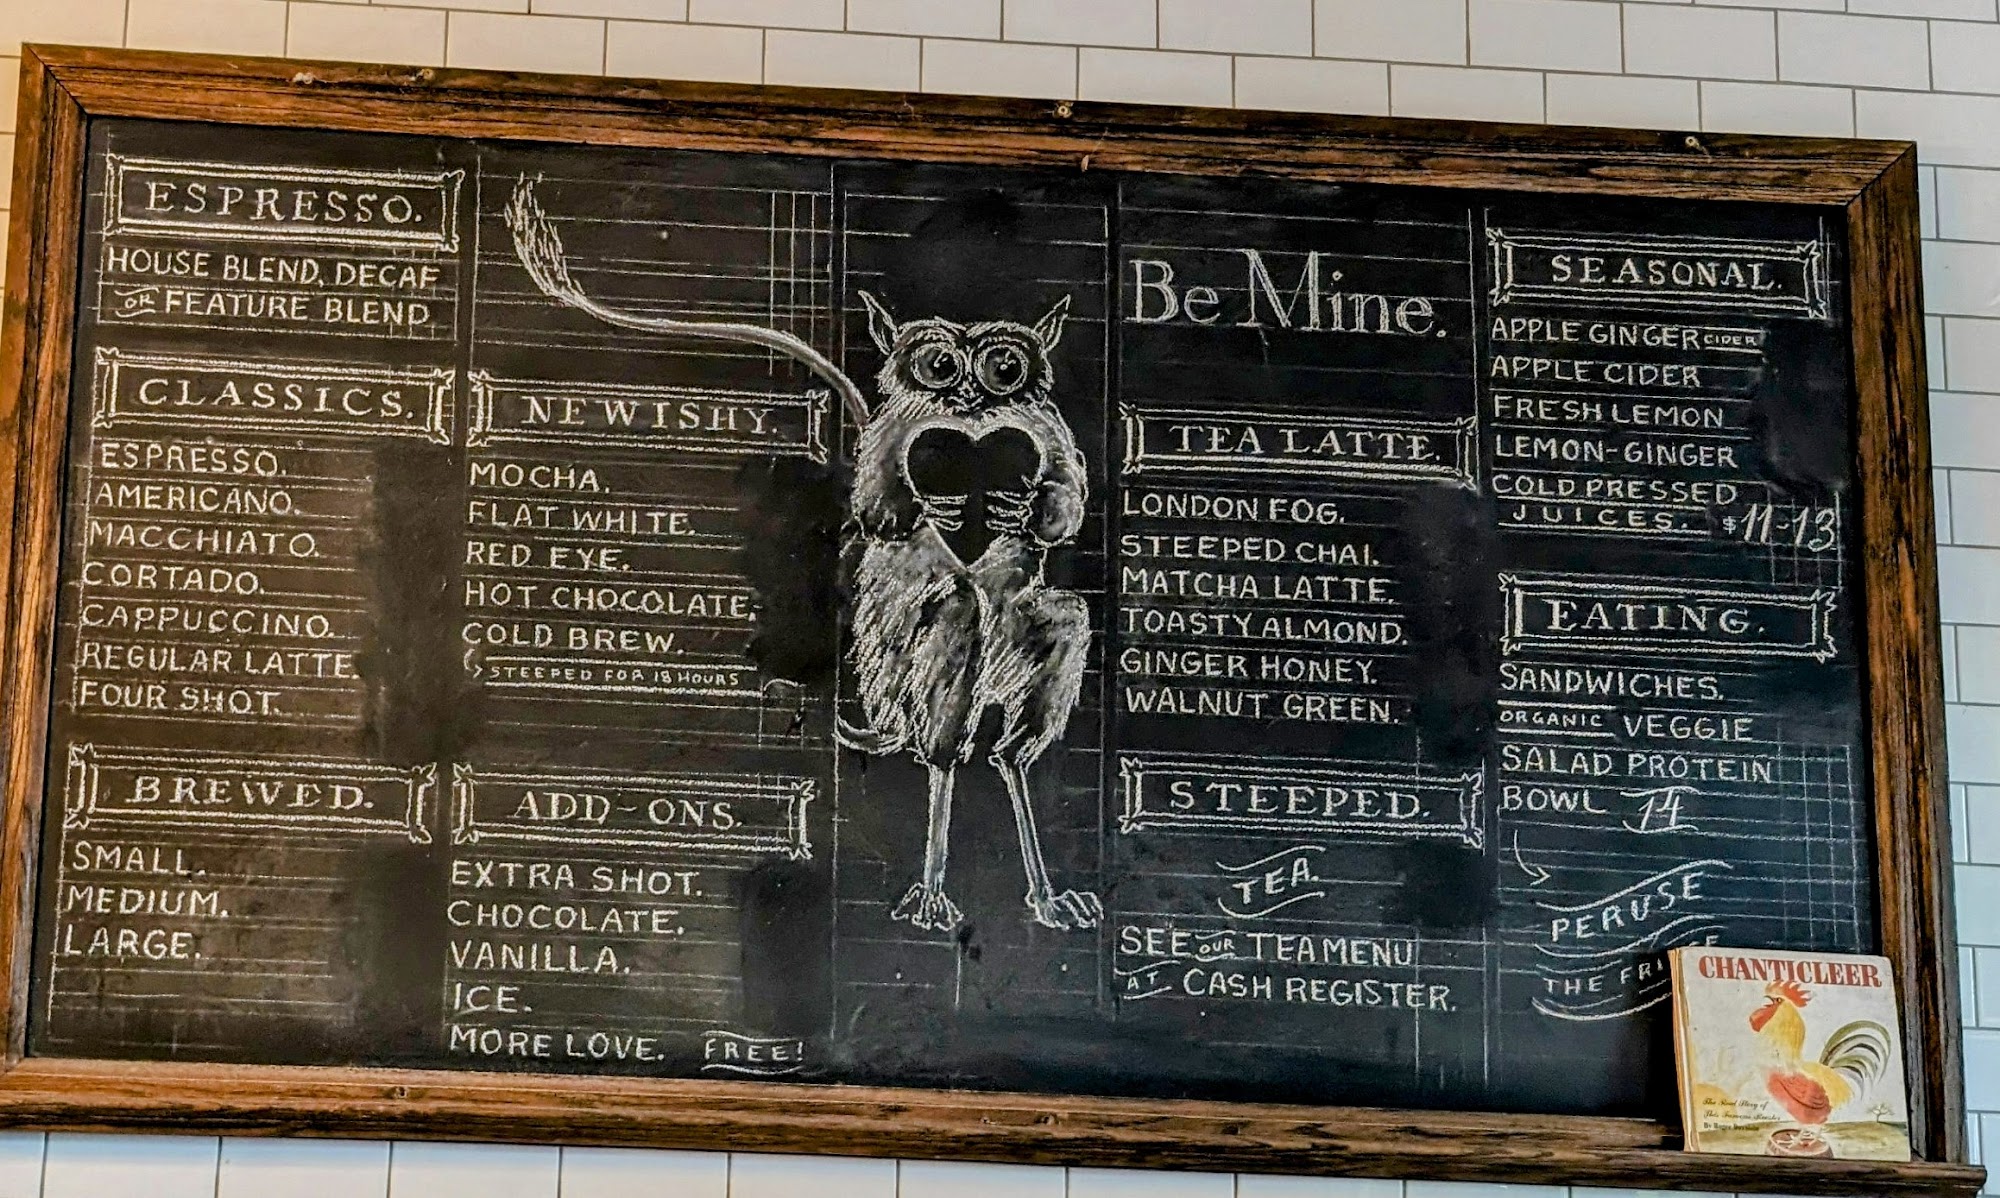 ESPRESSO.
HOUSE BLEND, DECAF
OR FEATURE BLEND
CLASSICS.
ESPRESSO.
AMERICANO.
MACCHIATO.
CORTADO.
CAPPUCCINO.
REGULAR LATTE.
FOUR SHOT.
BREWED.
SMALL.
MEDIUM.
LARGE.
NEWISHY.
MOCHA.
FLAT WHITE.
RED EYE.
HOT CHOCOLATE.
COLD BREW.
STEEPED FOR 18 HOURS
ADD-ONS.
EXTRA SHOT.
CHOCOLATE.
VANILLA.
ICE.
MORE LOVE. FREE!
Be Mine.
TEA LATTE.
LONDON FOG.
STEEPED CHAI.
MATCHA LATTE.
TOASTY ALMOND.
GINGER HONEY.
WALNUT GREEN.
STEEPED.
TEA.
SEE OUR TEA MENU
AT CASH REGISTER.
SEASONAL.
APPLE GINGER CIDER
APPLE CIDER
FRESH LEMON
LEMON-GINGER
COLD PRESSED
JUICES. $11-13
EATING.
SANDWICHES.
ORGANIC VEGGIE
SALAD PROTEIN
BOWL 14
PERUSE
THE
CHANTICLEER
The Real Story of